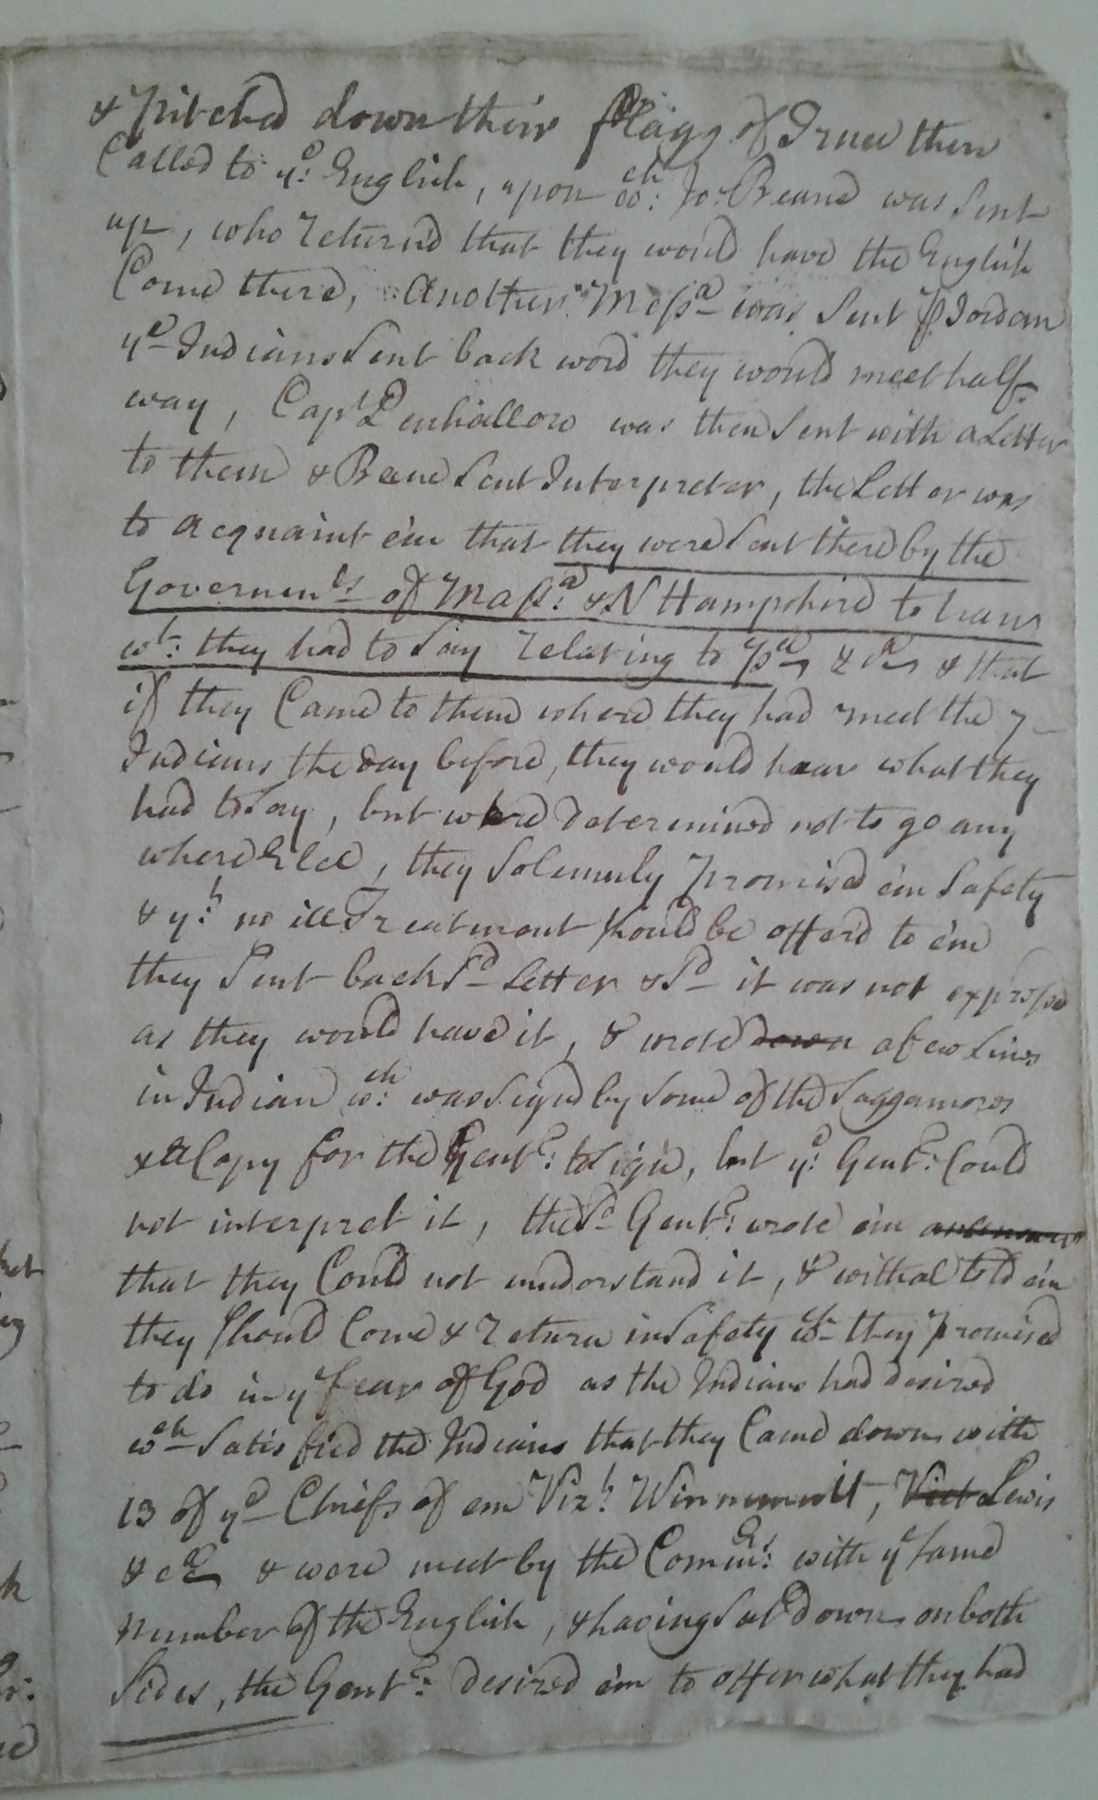 & Pitched down their Flagg of Truce then
Called to ye: English, upon wch: Jo: Beane was sent
up, who Returnd that they would have the English
Come there, Another Messa was sent ⅌ Jordan
ye Indians sent back word they would meet half
way, Capt Penhallow was then sent with a Letter
to them & Beane sent Interpreter, the Letter was
to acquaint e'm that they were sent there by the
Governmts of Massa: & N Hampshire to hear
wt: they had to say Relating to & that
if they Came to them where they had meet the 7
Indians the day before, they would hear what they
had to say, but where determined not to go any
where Else, they Solemnly Promised e'm Safety
& yt: no ill Treatment should be offer'd to e'm
they Sent back sd Letter & sd it was not express'd
as they would have it, & wrote down a few Lines
in Indian wch: was Signd by Some of the Saggamores
& a Copy for the Gentn: to Sign, but ye: Gentn: Could
not interpret it, the sd Gentn: wrote e'm
that they Could not understand it, & withal told e'm
they should Come & Return in Safety wch they Promised
to do in ye fear of God as the Indians had desired
wch Satisfied the Indians that they Came down with
13 of ye Chiefs of em Vizt: Winnemmitt, Vict Lewis
& ca & were meet by the Commrs: with ye same
Number of the English, & having Sat down on both
Sides, the Gentn: desired e'm to offer what they had